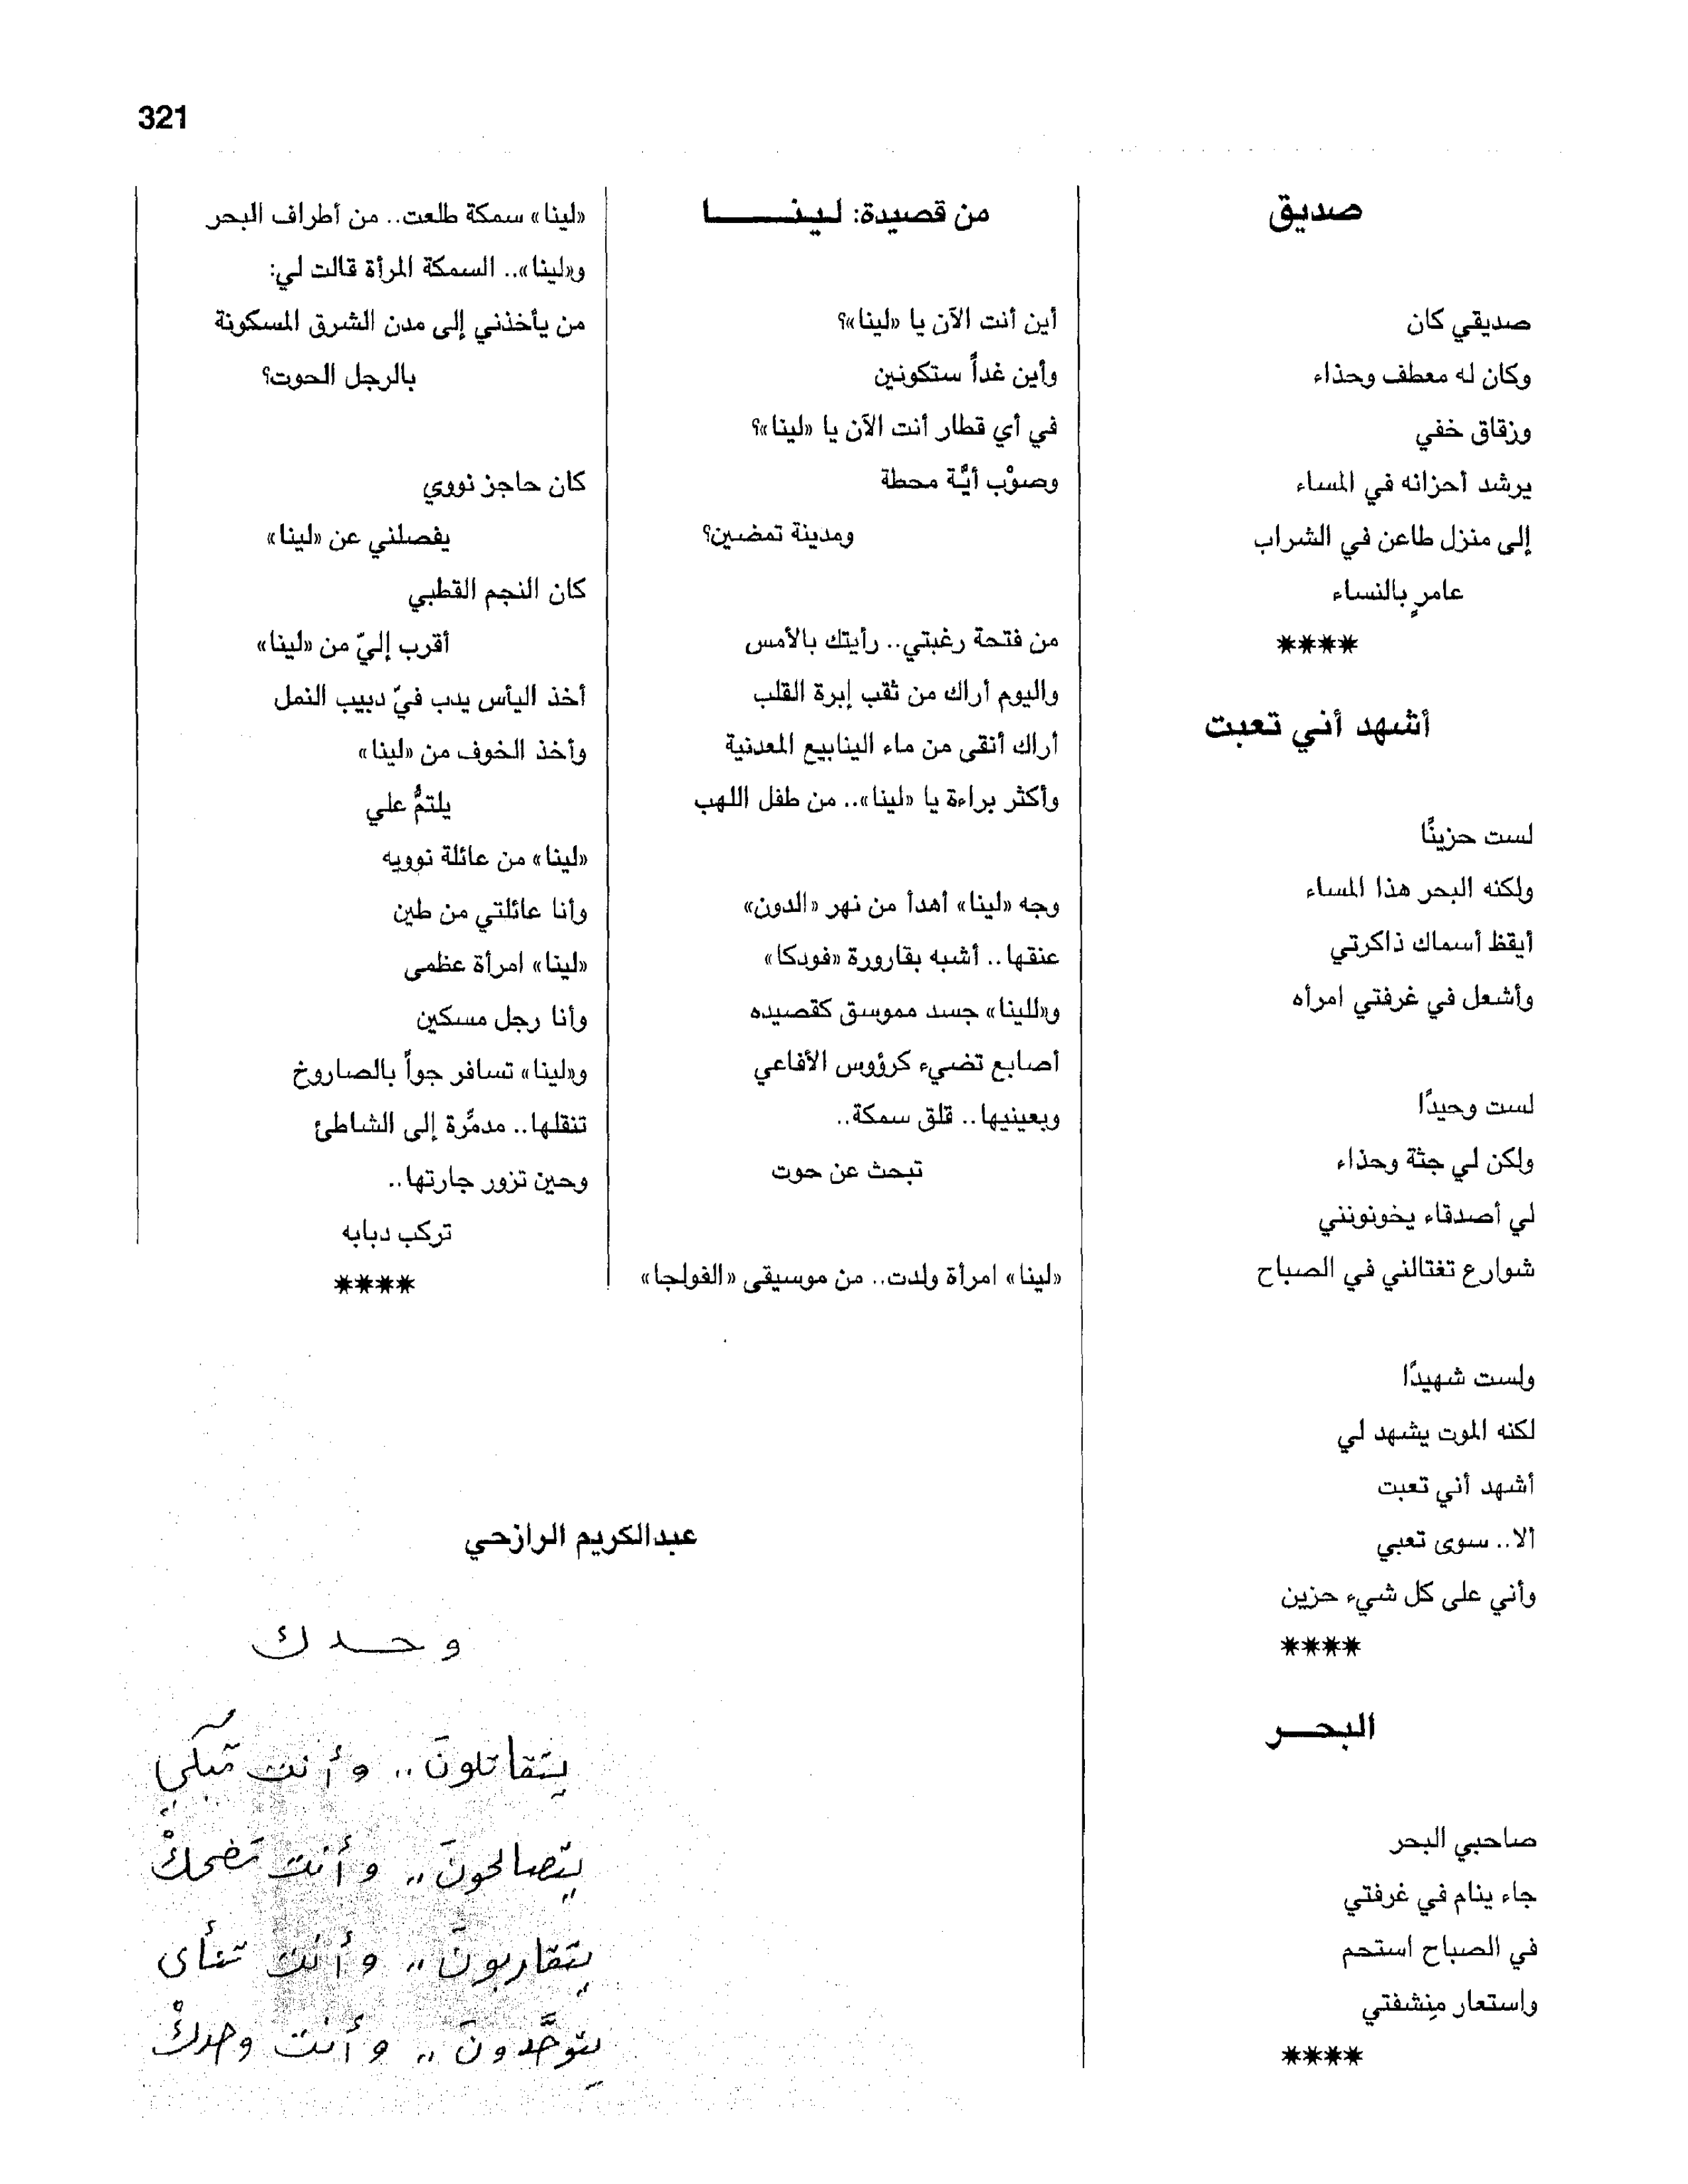 321
صديق
صديقي كان
وكان له معطف وحذاء
وزقاق خفي
يرشد أحزانه في المساء
إلى منزل طاعن في الشراب
عامرٍ بالنساء
****
أشهد أني تعبت
لست حزينًا
ولكنه البحر هذا المساء
أيقظ أسماك ذاكرتي
وأشعل في غرفتي امرأه
لست وحيدًا
ولكن لي جثة وحذاء
لي أصدقاء يخونونني
شوارع تغتالني في الصباح
ولست شهيدًا
لكنه الموت يشهد لي
أشهد أني تعبت
ألا.. سوى تعبي
وأني على كل شيء حزين
****
البحـــر
صاحبي البحر
جاء ينام في غرفتي
في الصباح استحم
واستعار مِنشفتي
****
من قصيدة: لـيـنـــــــا
أين أنت الآن يا «لينا»؟
وأين غداً ستكونين
في أي قطار أنت الآن يا «لينا»؟
وصوْب أيَّة محطة
ومدينة تمضين؟
من فتحة رغبتي.. رأيتك بالأمس
واليوم أراك من ثقب إبرة القلب
أراك أنقى من ماء الينابيع المعدنية
وأكثر براءة يا «لينا».. من طفل اللهب
وجه «لينا» أهدأ من نهر «الدون»
عنقها.. أشبه بقارورة «فودكا»
و«للينا» جسد مموسق كقصيده
أصابع تضيء كرؤوس الأفاعي
وبعينيها.. قلق سمكة..
تبحث عن حوت
«لينا» امرأة ولدت.. من موسيقى «الفولجا»
«لينا» سمكة طلعت.. من أطراف البحر
و«لينا».. السمكة المرأة قالت لي:
من يأخذني إلى مدن الشرق المسكونة
بالرجل الحوت؟
كان حاجز نووي
يفصلني عن «لينا»
كان النجم القطبي
أقرب إليّ من «لينا»
أخذ اليأس يدب فيّ دبيب النمل
وأخذ الخوف من «لينا»
يلتمُّ علي
«لينا» من عائلة نوويه
وأنا عائلتي من طين
«لينا» امرأة عظمى
وأنا رجل مسكين
و«لينا» تسافر جواً بالصاروخ
تنقلها.. مدمَّرة إلى الشاطئ
وحين تزور جارتها..
تركب دبابه
****
عبدالكريم الرازحي
وحـــدك
يتقاتلونَ.. وأنت تبكي
يتصالحونَ.. وأنت تضحكْ
يتقاربونَ.. وأنت تنأى
يتوحَّدونَ.. وأنت وحدكْ